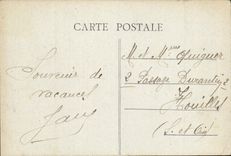 CARTE POSTALE
Souvenir de
vacances
M. et Mme Quiguer
2 Passage Durantin 2
Houilles
(S. et O)